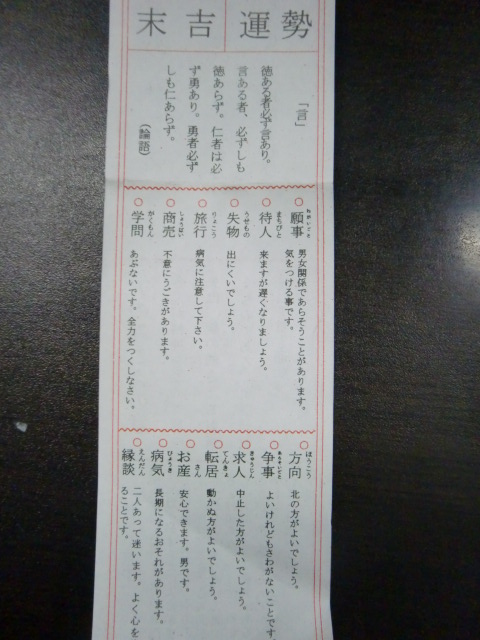 運勢
末吉
「言」
徳ある者必ず言あり。
言ある者、必ずしも
徳あらず。仁者は必
ず勇あり。勇者必ず
しも仁あらず。
（論語）
○願事 ねがいごと
男女関係であらそうことがあります。
気をつける事です。
○待人 まちびと
来ますが遅くなりましょう。
○失物 うせもの
出にくいでしょう。
○旅行 りょこう
病気に注意して下さい。
○商売 しょうばい
不意にうごきがあります。
○学問 がくもん
あぶないです。全力をつくしなさい。
○方向 ほうこう
北の方がよいでしょう。
○争事 あらそいごと
よいけれどもさわがないことです。
○求人 きゅうじん
中止した方がよいでしょう。
○転居 てんきょ
動かぬ方がよいでしょう。
○お産 さん
安心できます。男です。
○病気 びょうき
長期になるおそれがあります。
○縁談 えんだん
二人あって迷います。よく心を
ることです。